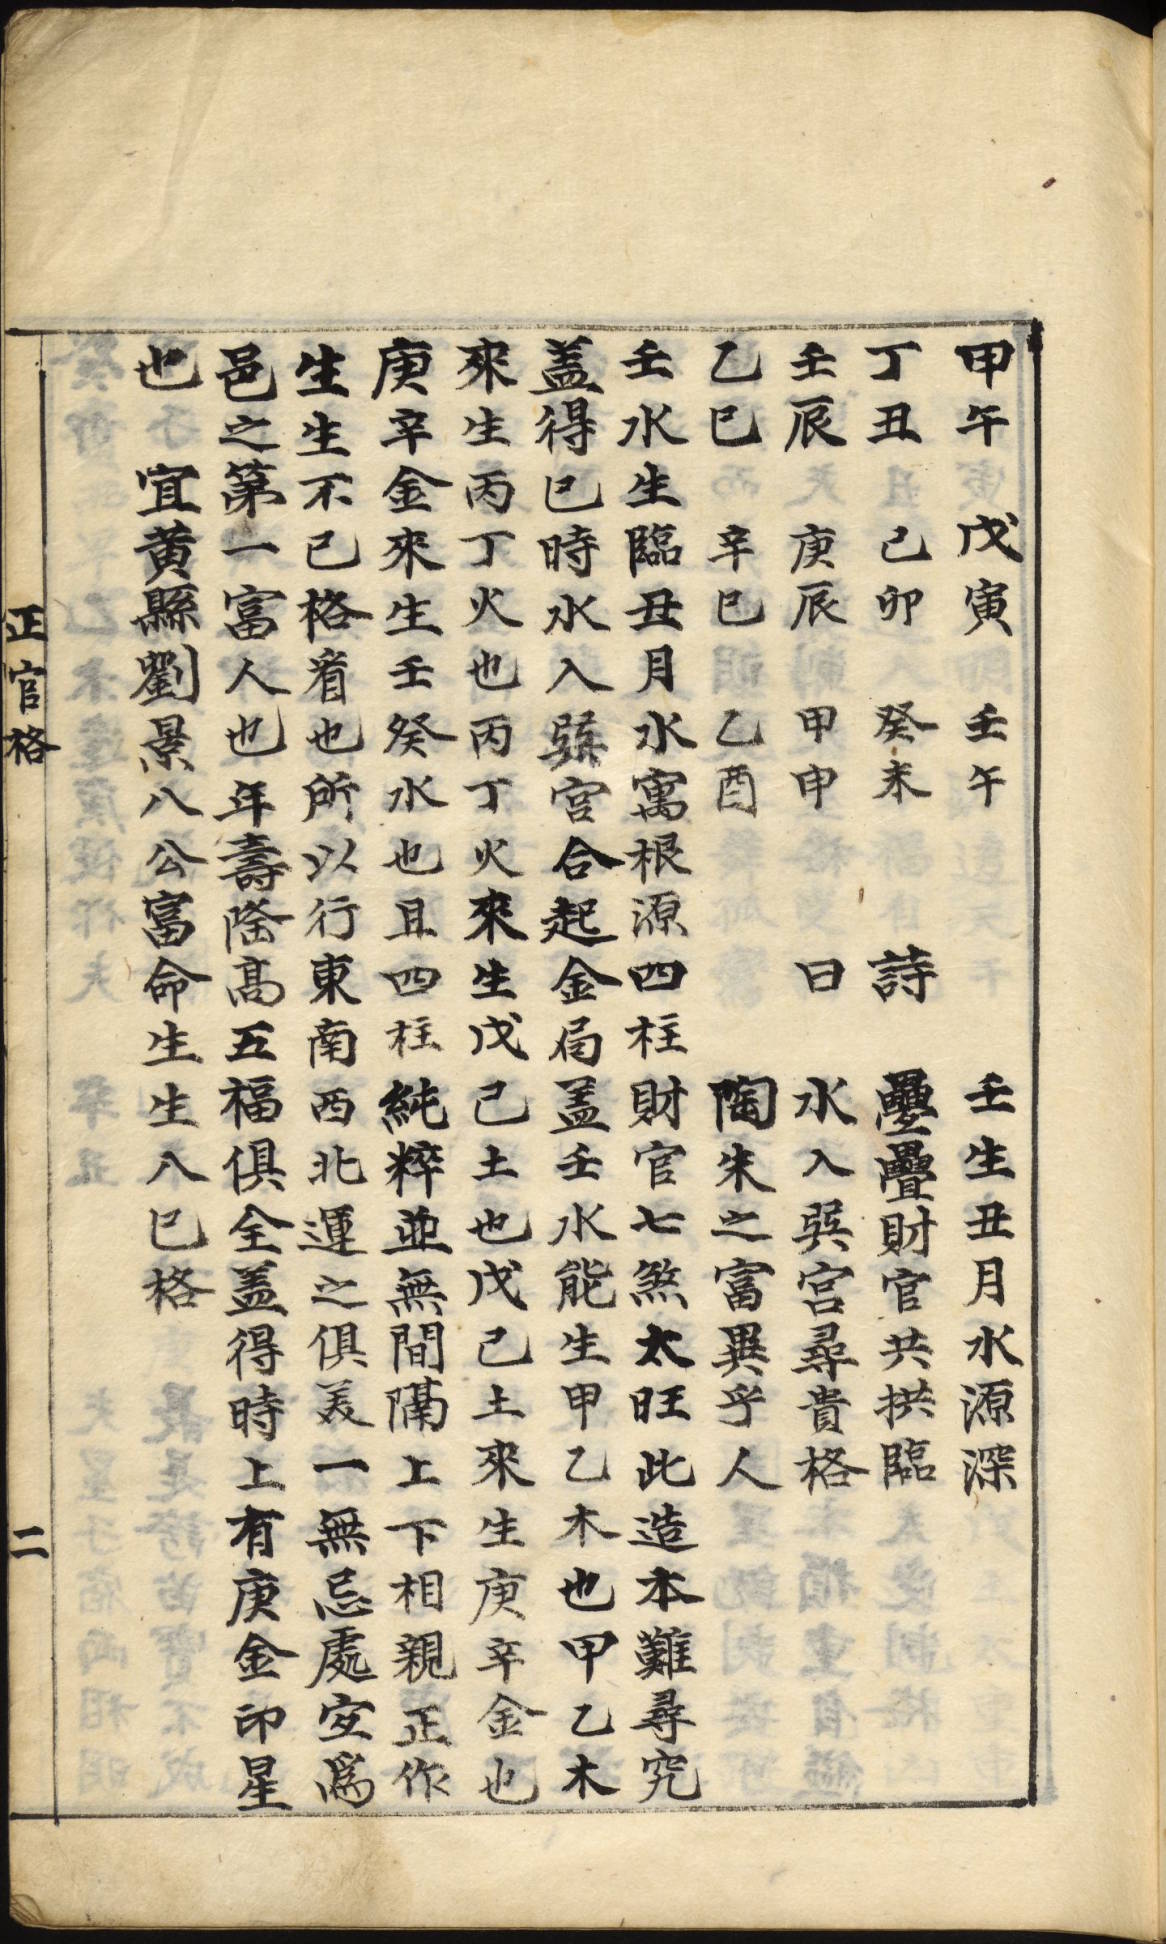 甲午　戊寅　壬午　　壬生丑月水源深
丁丑　己卯　癸未　詩　疊疊財官共拱臨
壬辰　庚辰　甲申　曰　水入巽宮尋貴格
乙巳　辛巳　乙酉　　陶朱之富異乎人
壬水生臨丑月水寓根源四柱財官七煞太旺此造本難尋究
盖得巳時水入巽宮合起金局盖壬水能生甲乙木也甲乙木
來生丙丁火也丙丁火來生戊己土也戊己土來生庚辛金也
庚辛金來生壬癸水也且四柱純粹並無間隔上下相親正作
生生不已格看也所以行東南西北運之俱美一無忌處定爲
邑之第一富人也年壽隆高五福俱全盖得時上有庚金印星
也　宜黄縣劉景八公富命生生八巳格
正官格　二